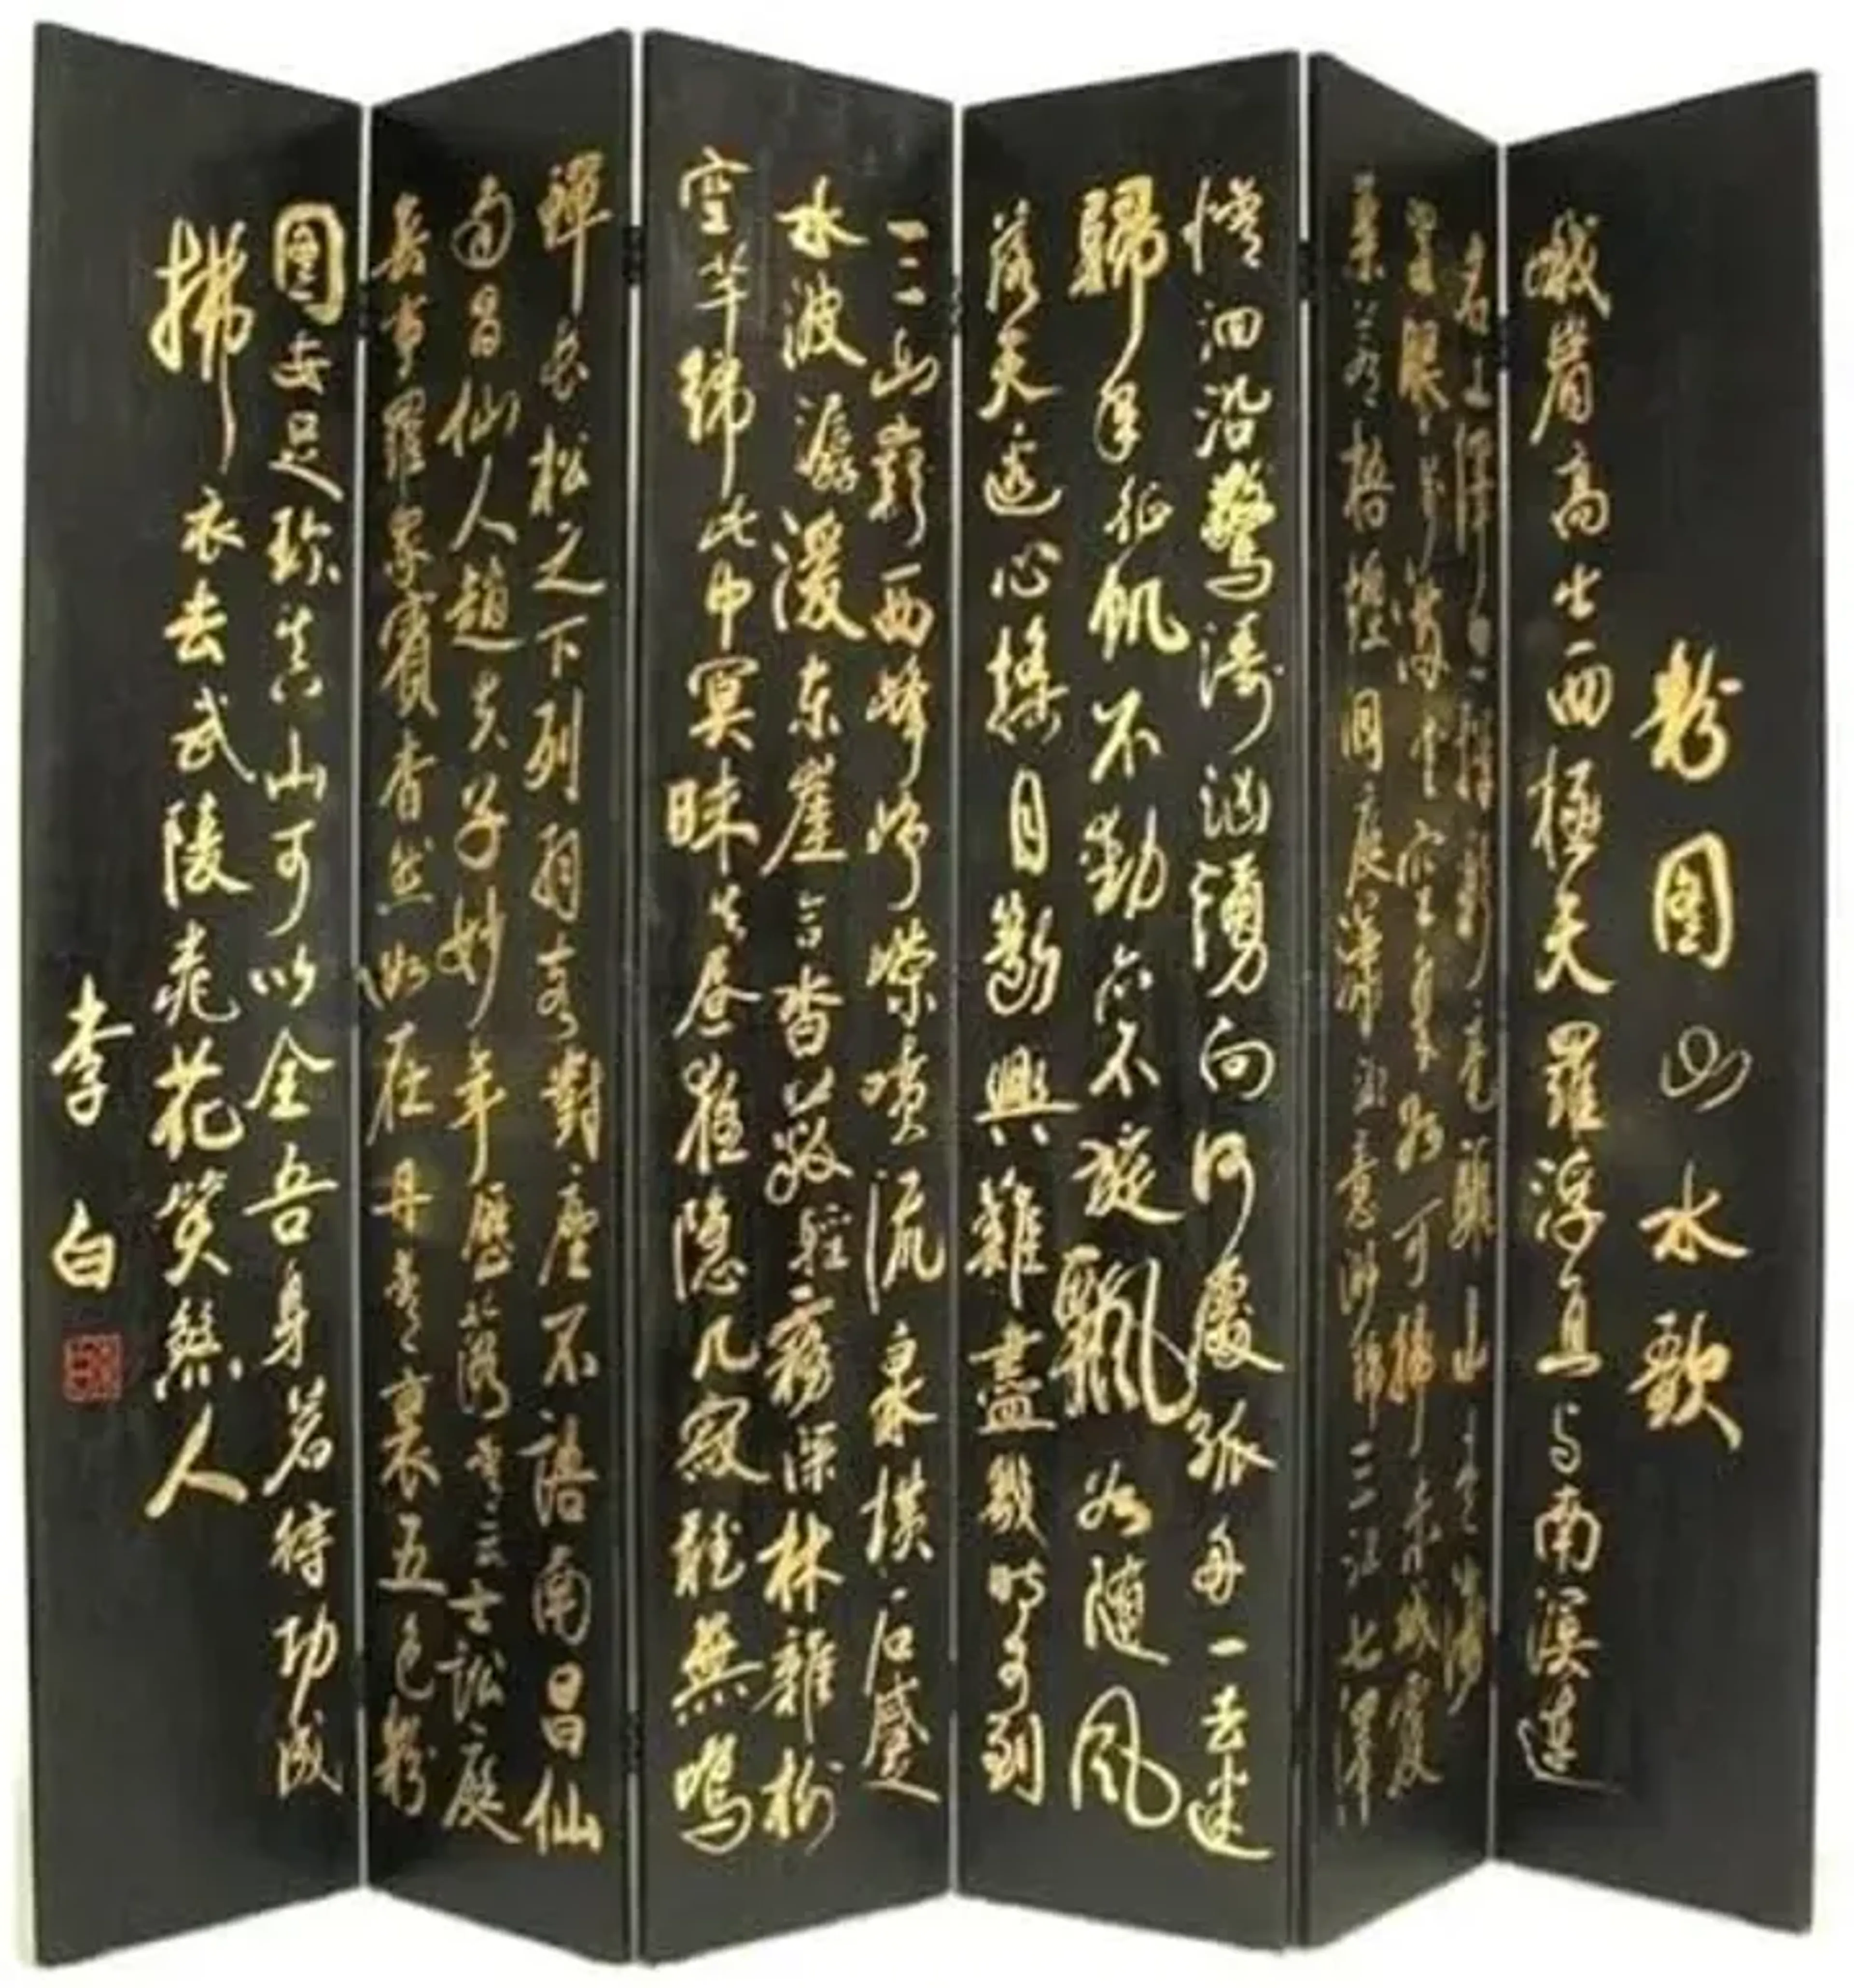 粉圖山水歌
峨眉高出西極天羅浮直与南溟連
名工繹思揮彩筆驅山走海
置眼前滿堂空翠如可掃赤城霞
氣蒼梧煙洞庭瀟湘意渺綿三江七澤
情洄沿驚濤洶湧向何處孤舟一去迷
歸年征帆不動亦不旋飄如隨風
落天邊心搖目斷興難盡幾時可到
三山巔西峰崢嶸噴流泉橫石蹙
水波潺湲东崖合沓蔽輕霧深林雜樹
空芊綿此中冥昧失晝夜隱几寂聽無鳴
蟬長松之下列羽客對座不語南昌仙
南昌仙人趙夫子妙年歷落青云士訟庭
無事羅眾賓杳然如在丹青裏五色粉
圖安足珍真山可以全吾身若待功成
拂衣去武陵桃花笑煞人
李白